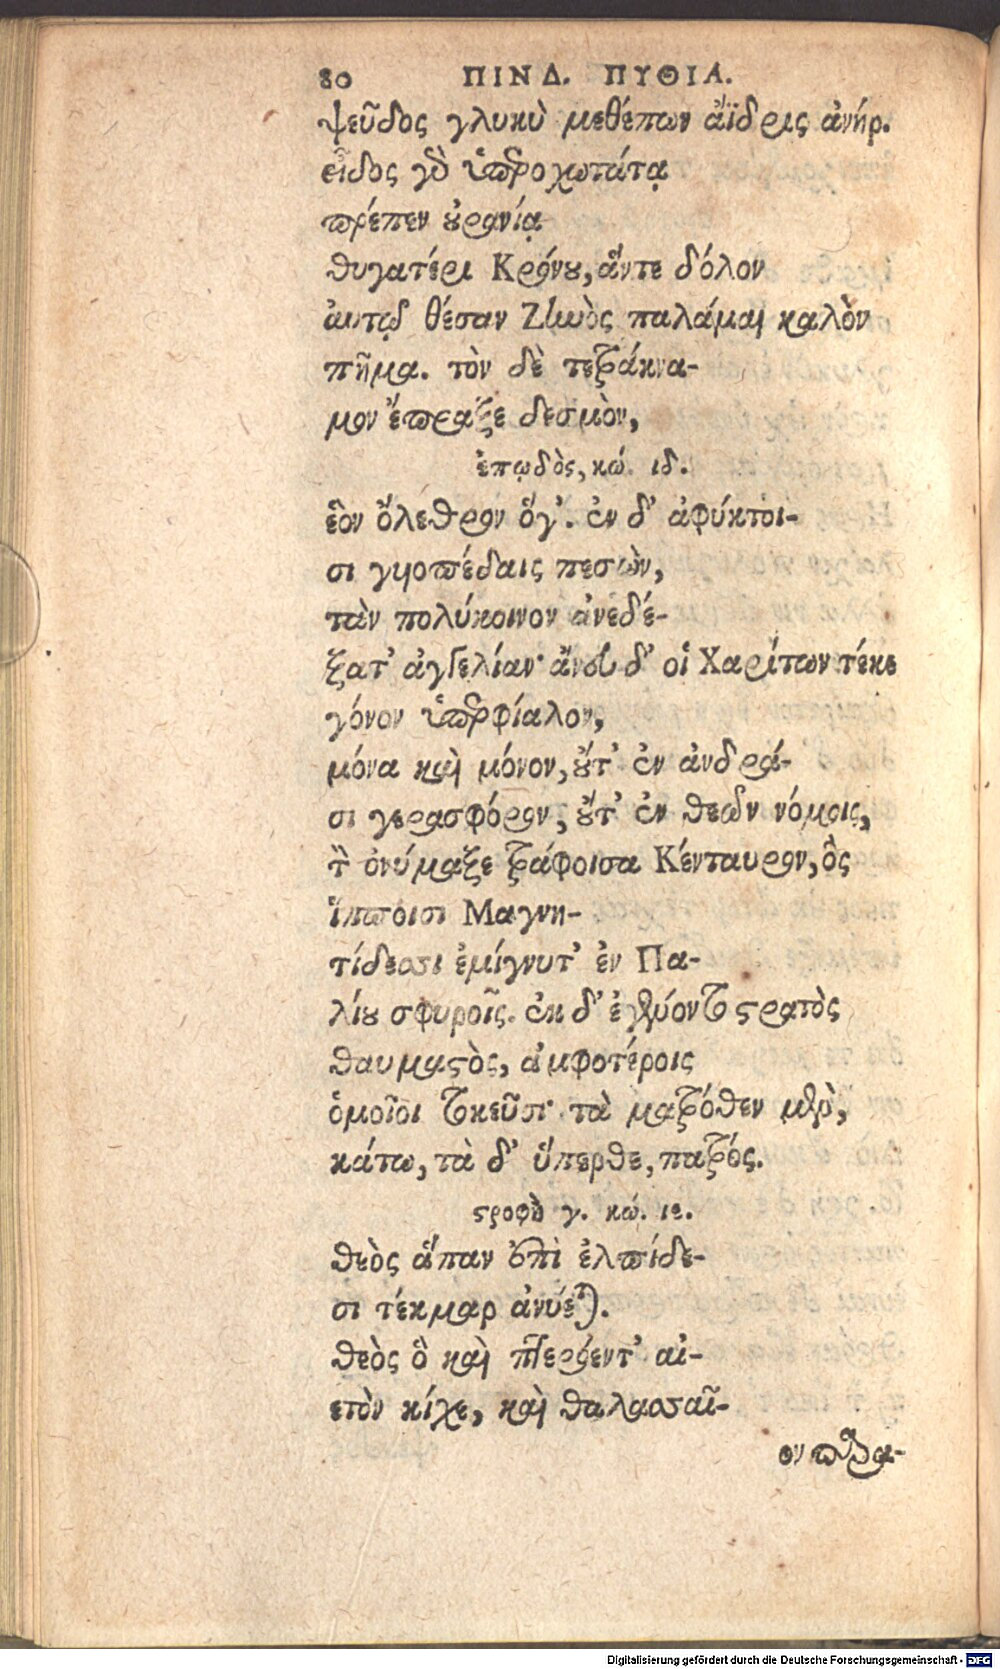 80 ΠΙΝΔ. ΠΥΘΙΑ.
ψεῦδος γλυκὺ μεθέπων ἄϊδρις ἀνήρ.
εἶδος γὸ ὑπὸροχωτάτᾳ
πρέπεν οὐρανίᾳ
θυγατέρι Κρόνου, ἅντε δόλον
αὐτῷ θέσαν Ζίωὸς παλάμαι καλὸν
πῆμα. τὸν δὲ τετράκνα-
μον ἔπραξε δεσμὸν,
ἐπῳδὸς, κώ. ιδ.
ἑὸν ὄλεθρον ὅγ’. ἐν δ’ ἀφύκτοι-
σι γυιοπέδαις πεσὼν,
τὰν πολύκοινον ἀνεδέ-
ξατ’ ἀγγελίαν· ἄνευ δ’ οἱ Χαρίτων τέκε
γόνον ὑπερφίαλον,
μόνα καὶ μόνον, οὔτ’ ἐν ἀνδρά-
σι γερασφόρον, οὔτ’ ἐν θεῶν νόμοις,
τὸν ὀνύμαξε τράφοισα Κένταυρον, ὃς
ἵπποισι Μαγνη-
τίδεσσι ἐμίγνυτ’ ἐν Πα-
λίου σφυροῖς. ἐκ δ’ ἐγένοντο στρατὸς
θαυμαστὸς, ἀμφοτέροις
ὁμοῖοι τοκεῦσι· τὰ ματρόθεν μὲν,
κάτω, τὰ δ’ ὕπερθε, πατρός.
στροφὴ γ. κώ. ιε.
θεὸς ἅπαν ἐπὶ ἐλπίδε-
σι τέκμαρ ἀνύεται.
θεὸς ὃ καὶ πτερόεντ’ αἰ-
ετὸν κίχε, καὶ θαλασσαῖ-
ον παρα-
Digitalisierung gefördert durch die Deutsche Forschungsgemeinschaft - DFG